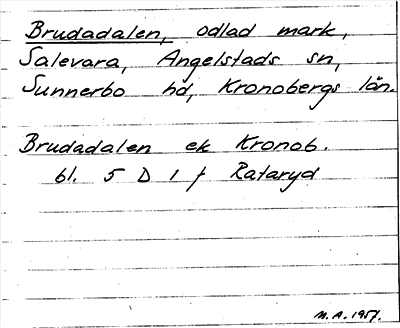 Brudadalen, odlad mark,
Salevara, Angelstads sn,
Sunnerbo hd, Kronobergs län.
Brudadalen ek Kronob.
bl. 5 D 1 f Rataryd
M.A. 1957.